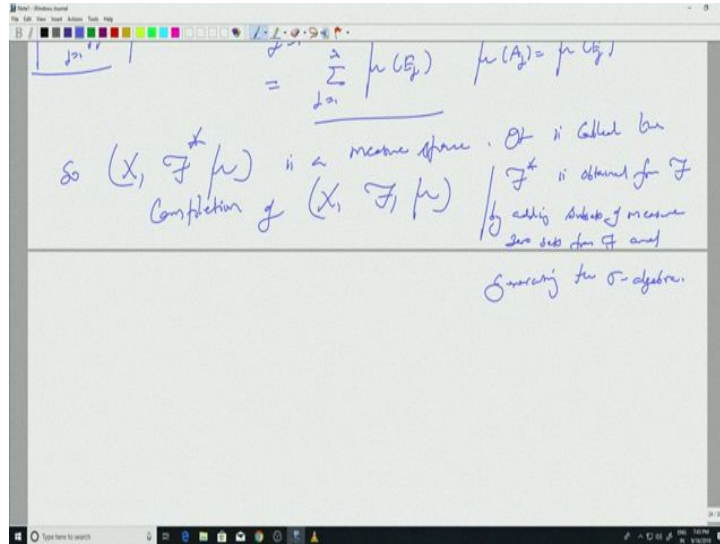 Note1 - Windows Journal
File Edit View Insert Actions Tools Help
= ∑ μ(E_j) μ(A_j) = μ(E_j)
j=1
So (X, F* μ) is a measure space. It is called the
Completion of (X, F, μ)
F* is obtained from F
by adding subsets of measure
zero sets from F and
generating the σ-algebra.
Type here to search
ENG 7:40 PM
IN 9/16/2019